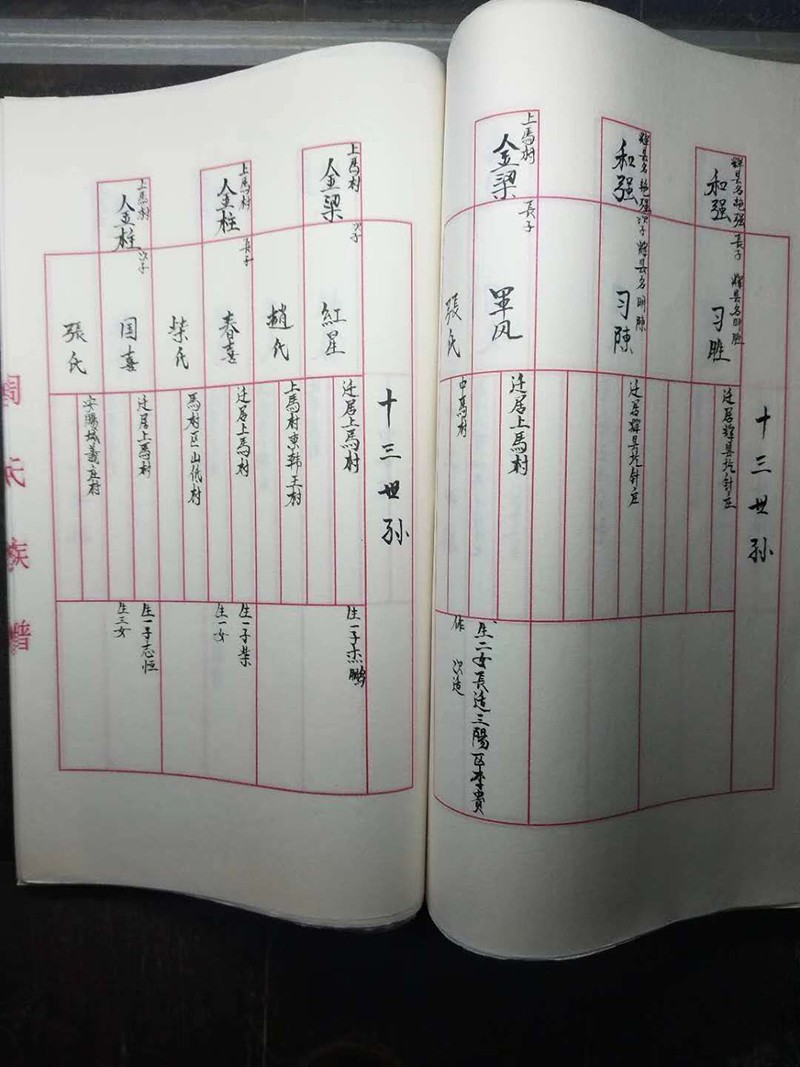 十三世孙
辉县名艳强
和强
长子 辉县名明胜
习胜
迁居辉县坑针庄
辉县名艳强
和强
次子 辉县名明陳
习陳
迁居辉县坑针庄
上馬村
金梁
长子
軍风
迁居上馬村
張氏
中馬村
生二女長适三陽区李貴
作 次适
十三世孙
上馬村
金梁
次子
紅星
迁居上馬村
生一子杰鹏
趙氏
上馬村東韩王村
上馬村
金柱
長子
春喜
迁居上馬村
生一子柴
生一女
柴氏
馬村区山佰村
上馬村
金柱
次子
国喜
迁居上馬村
生一子志恒
生三女
張氏
安陽城義庄村
氏族谱